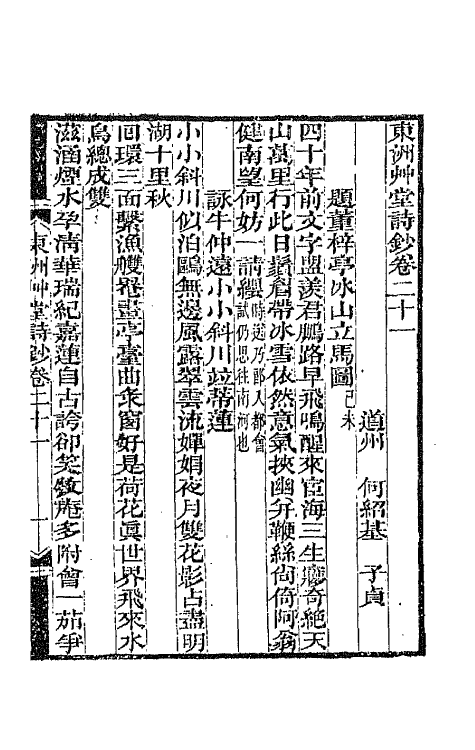 東洲艸堂詩鈔卷二十一
道州 何紹基 子貞
題董梓亭冰山立馬圖己未
四十年前文字盟羨君鵬路早飛鳴醒來宦海三生夢奇絶天
山萬里行此日鬚眉帶冰雪依然意氣挾幽并鞭絲尙倚阿翁
健南望何妨一請纓時廷乃郎入都會試仍思往南河也
詠牛仲遠小小斜川竝蒂蓮
小小斜川似泊鷗無邊風露翠雲流嬋娟夜月雙花影占盡明
湖十里秋
回環三面繫漁艭罨畫亭臺曲衆窗好是荷花眞世界飛來水
鳥總成雙
滋涵煙水孕清華瑞紀嘉蓮自古誇卻笑 多附會一茄爭
東州艸堂詩鈔卷二十一 一